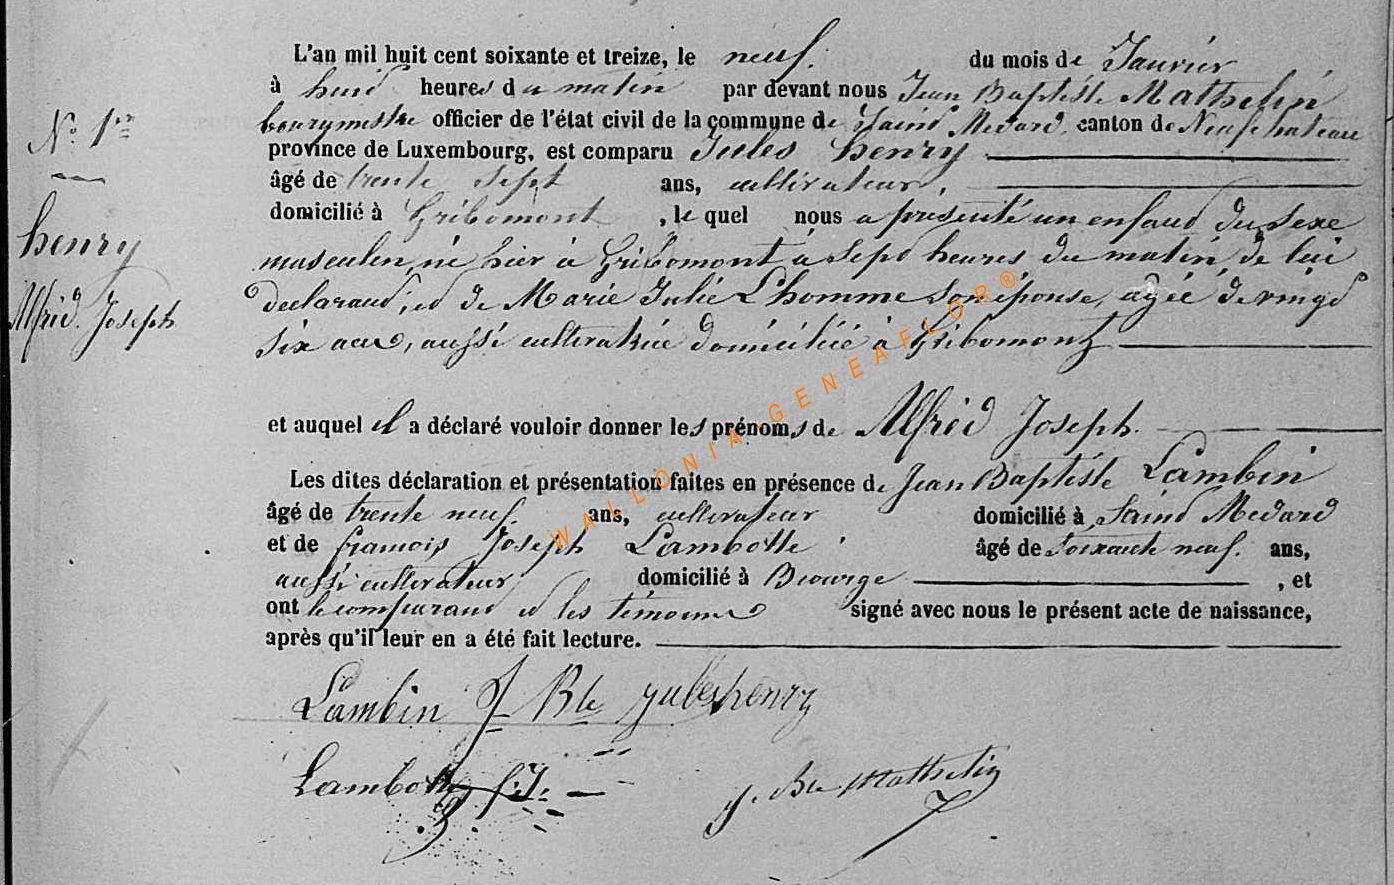 L'an mil huit cent soixante et treize, le neuf. du mois de Janvier
à huit heures du matin par devant nous Jean Baptiste Mathelin
N.° 1er
bourgmestre officier de l'état civil de la commune de Saint Medard, canton de Neufchateau
province de Luxembourg, est comparu Jules henry
âgé de trente sept ans, cultivateur,
domicilié à Gribomont, le quel nous a presenté un enfant du sexe
henry
masculin, né hier à Gribomont à sept heures du matin, de lui
declarant, et de Marie Julie Lhomme son épouse, agée de vingt
Alfrid. Joseph
six ans, aussi cultivatrice domiciliée à Gribomont
et auquel il a déclaré vouloir donner les prénoms de Alfrid Joseph.
Les dites déclaration et présentation faites en présence de Jean Baptiste Lambin
âgé de trente neuf ans, cultivateur domicilié à Saint Medard
et de françois Joseph Lambotte âgé de soixante neuf. ans,
aussi cultivateur domicilié à Biourge, et
ont le comparant et les témoins signé avec nous le présent acte de naissance,
après qu'il leur en a été fait lecture.
Lambin J Bte jules henry
Lambotte f.J.
j. Bte Mathelin
WALLONIA-GENEAFLOR®